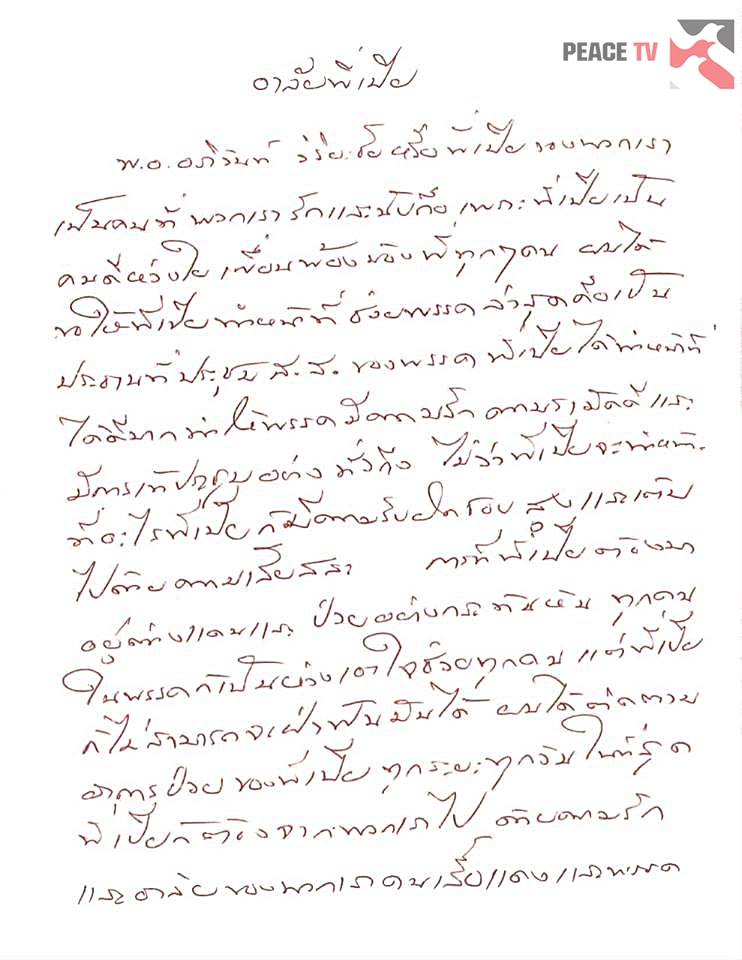 PEACE TV
อาลัยพี่เปีย
พ.อ.อภิวันท์ วิริยะชัยหรือพี่เปียของพวกเรา
เป็นคนที่พวกเรารักและนับถือ เพราะพี่เปียเป็น
คนดีห่วงใย เพื่อนพ้องน้องพี่ทุกๆคน ผมได้
ขอให้พี่เปียทำหน้าที่ช่วยพรรคล่าสุดคือเป็น
ประธานที่ประชุม ส.ส. ของพรรค พี่เปียได้ทำหน้าที่
ได้ดีมากทำให้พรรคมีความรัก ความสามัคคีและ
มีการเข้าประชุมอย่างทั่วถึง ไม่ว่าพี่เปียจะทำหน้าที่
ที่อะไรพี่เปียก็มีความรับผิดชอบสูงและเต็ม
ไปด้วยความเสียสละ การที่พี่เปียต้องมา
อยู่ต่างแดนและป่วยอย่างกระทันหัน ทุกคน
ในพรรคก็เป็นห่วงเอาใจช่วยทุกคน แต่พี่เปีย
ก็ไม่สามารถจะฝ่าฟันมันได้ ผมได้ติดตาม
อาการป่วยของพี่เปียทุกระยะทุกวันในที่สุด
พี่เปียก็ต้องจากพวกเราไป ด้วยความรัก
และอาลัยของพวกเราคนเสื้อแดงและพรรค